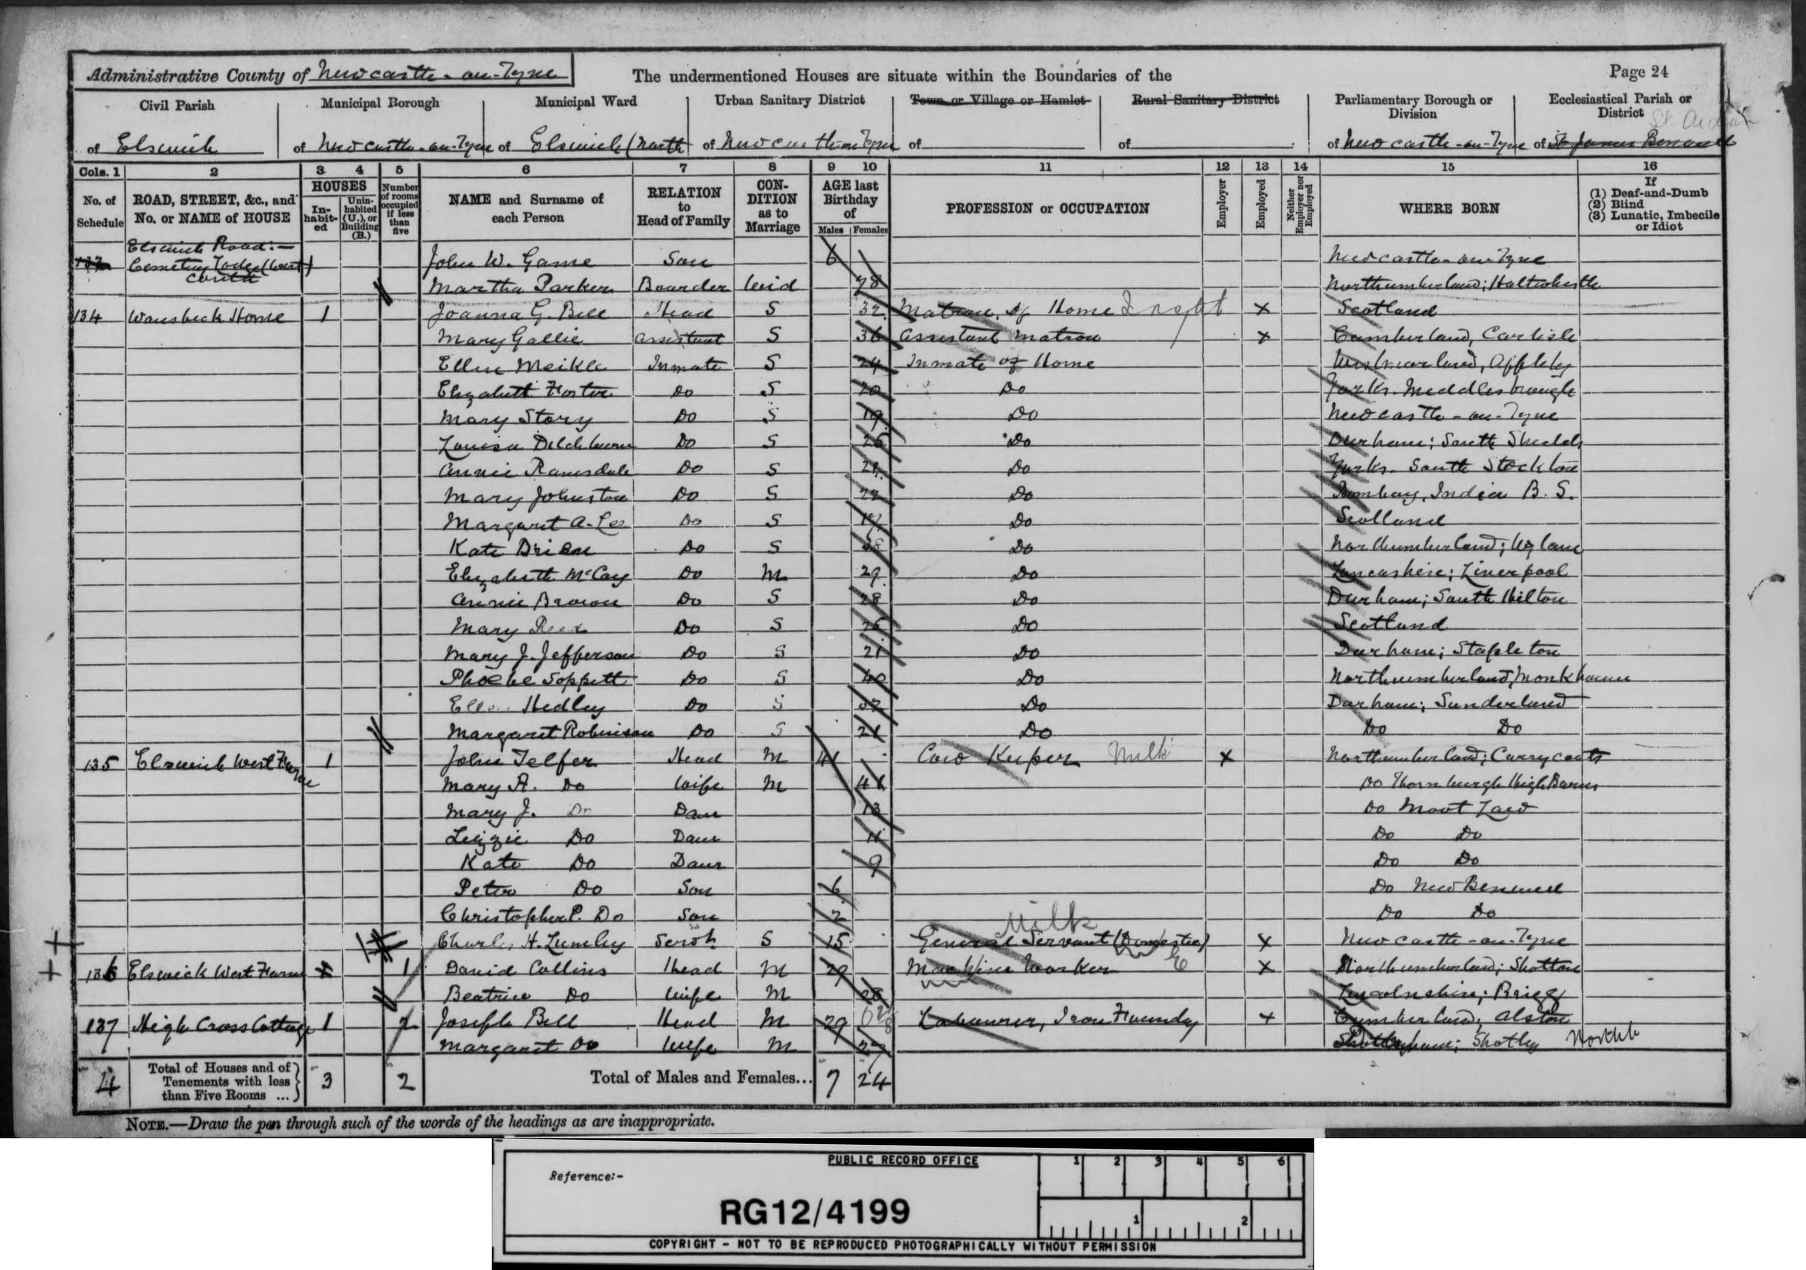 Administrative County of Newcastle-on-Tyne The undermentioned Houses are situate within the Boundaries of the Page 24
Civil Parish Municipal Borough Municipal Ward Urban Sanitary District Town or Village or Hamlet Rural Sanitary District Parliamentary Borough or Division Ecclesiastical Parish or District
of Elswick of Newcastle-on-Tyne of Elswick (North of Newcastle-on-Tyne of of of Newcastle-on-Tyne of St James Benwell
Cols. 1 2 3 4 5 6 7 8 9 10 11 12 13 14 15 16
No. of Schedule ROAD, STREET, &c., and No. or NAME of HOUSE HOUSES Inhabited Uninhabited (U.), or Building (B.) Number of rooms occupied if less than five NAME and Surname of each Person RELATION to Head of Family CONDITION as to Marriage AGE last Birthday of Males Females PROFESSION or OCCUPATION Employer Employed Neither Employer nor Employed WHERE BORN If (1) Deaf-and-Dumb (2) Blind (3) Lunatic, Imbecile or Idiot
Elswick Road:-
Cemetery Lodge (West) John W. Game Son 6 Newcastle-on-Tyne
Martha Parker Boarder Wid 78 Northumberland; Haltwhistle
134 Wansbeck Home 1 Joanna G. Bell Head S 32 Matron of Home X Scotland
Mary Gallie Assistant S 36 Assistant Matron X Cumberland, Carlisle
Ellen Meikle Inmate S 24 Inmate of Home Westmorland, Appleby
Elizabeth Foster Do S 20 Do Yorks. Middlesbrough
Mary Story Do S 19 Do Newcastle-on-Tyne
Louisa Ditchburn Do S 26 Do Durham; South Shields
Annie Ramsdale Do S 21 Do Yorks. South Stockton
Mary Johnston Do S 22 Do Bombay, India B.S.
Margaret A. Lee Do S Do Scotland
Kate Do S Do Northumberland;
Elizabeth McCay Do M 29 Do Lancashire; Liverpool
Annie Brown Do S 28 Do Durham; South Hilton
Mary Do S 26 Do Scotland
Mary J. Jefferson Do S 21 Do Durham; Stapleton
Phoebe Soppett Do S 40 Do Northumberland,
Hedley Do S 37 Do Durham; Sunderland
Margaret Robinson Do S 21 Do Do Do
135 Elswick West Farm 1 John Telfer Head M 41 Cow Keeper Milk X Northumberland; Carrycoats
Mary A. Do Wife M 41 Do Thornburgh High Barns
Mary J. Do Daur 13 Do Moot Law
Lizzie Do Daur 11 Do Do
Kate Do Daur 9 Do Do
Peter Do Son 6 Do New Benwell
Christopher P. Do Son 2 Do Do
Milk
Charles H. Lumley Servt S 15 General Servant (Domestic) X Newcastle-on-Tyne
136 Elswick West Farm 1 David Collins Head M 29 Machine Worker X Northumberland; Shotton
Beatrice Do Wife M 28 Lincolnshire; Brigg
137 High Cross Cottage 1 2 Joseph Bell Head M 29 Labourer, Iron Foundry X Cumberland; Alston
Margaret Do Wife M 27 Shotley
4 Total of Houses and of Tenements with less than Five Rooms ... 3 2 Total of Males and Females... 7 24
NOTE.—Draw the pen through such of the words of the headings as are inappropriate.
PUBLIC RECORD OFFICE 1 2 3 4 5 6
Reference:-
RG12/4199 1 2
COPYRIGHT - NOT TO BE REPRODUCED PHOTOGRAPHICALLY WITHOUT PERMISSION